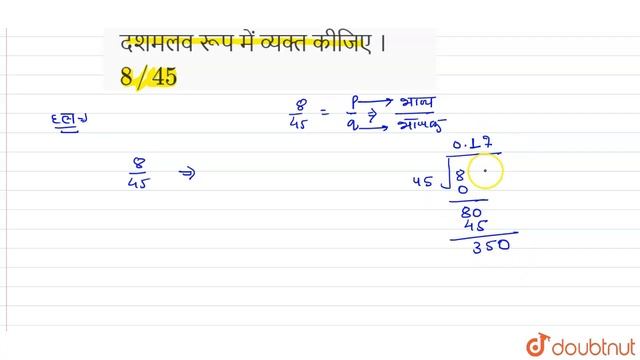 दशमलव रूप में व्यक्त कीजिए ।
8 / 45
हल→
8/45 = p/q → ⇒ भाज्य/भाजक
8/45 ⇒
0.17
45 √8
0
80
45
350
doubtnut